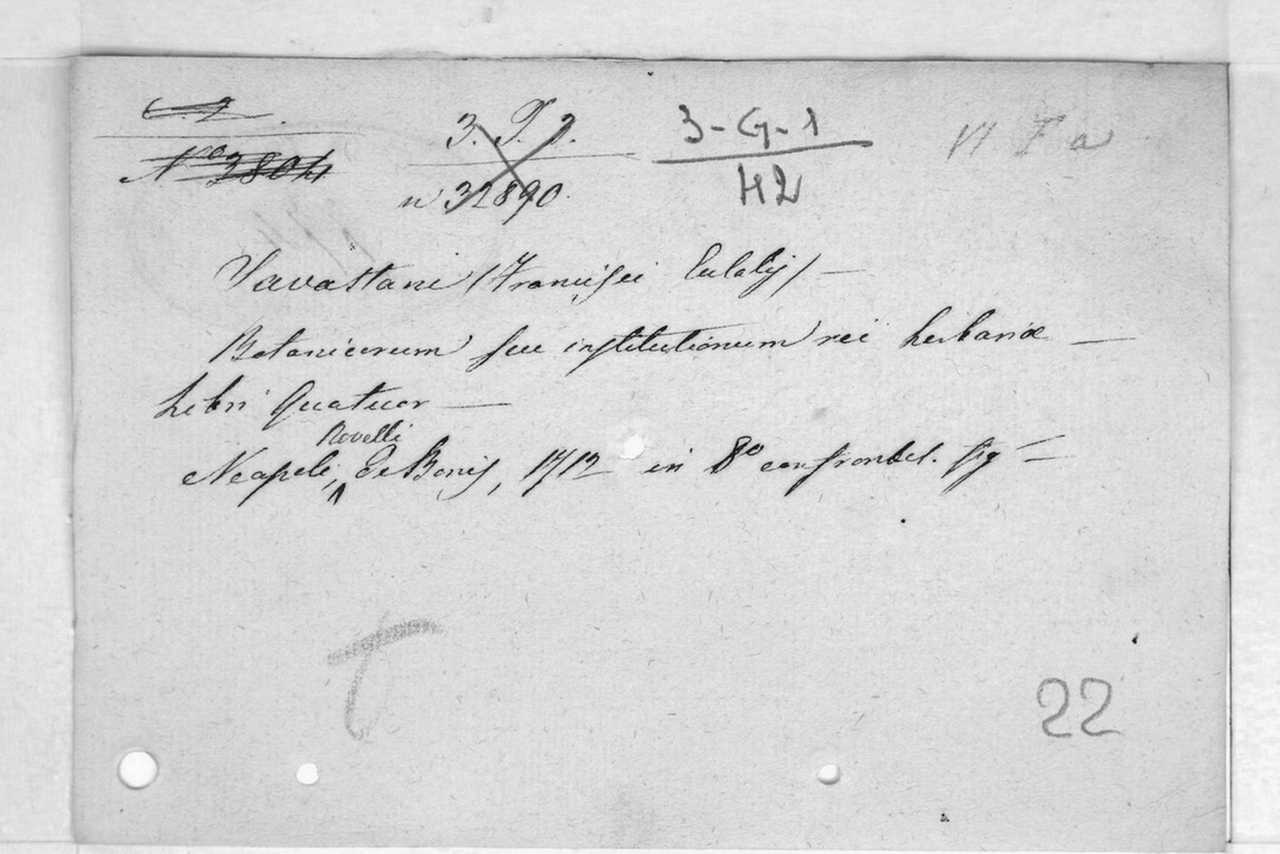 N° 3804
3. P. 2.
n 32890
3-G-1
42
VI F a
Savastani (Francisci Eulalij) —
Botanicorum seu institutionum rei herbariæ —
Libri Quatuor —
Novelli
Neapoli, De Bonis, 1712 in 8° con frontes. fig —
T
22